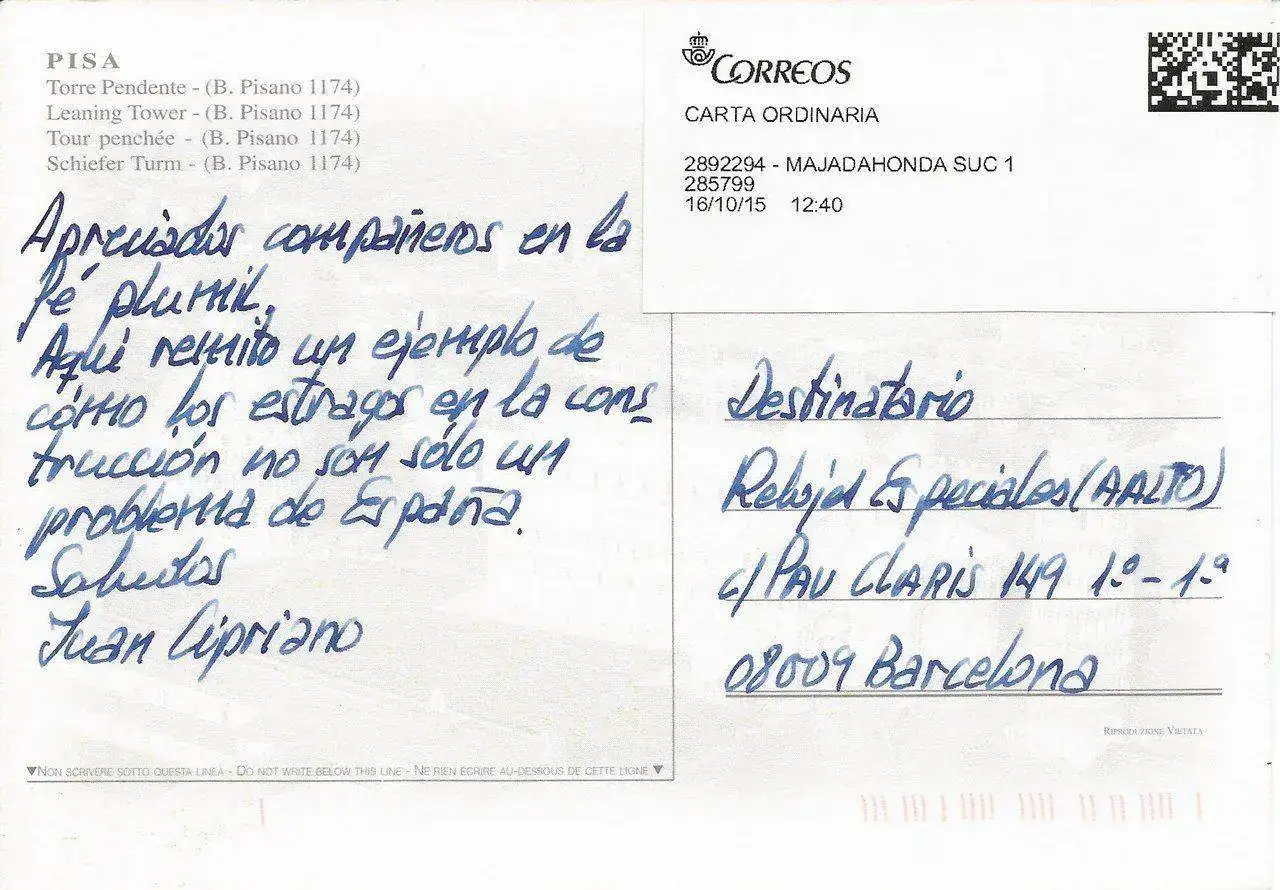 PISA
Torre Pendente - (B. Pisano 1174)
Leaning Tower - (B. Pisano 1174)
Tour penchée - (B. Pisano 1174)
Schiefer Turm - (B. Pisano 1174)
Apreciados compañeros en la
Fé plumil.
Aquí remito un ejemplo de
cómo los estragos en la cons
trucción no són sólo un
problema de España.
Saludos
Juan Cipriano
▼NON SCRIVERE SOTTO QUESTA LINEA - DO NOT WRITE BELOW THIS LINE - NE RIEN ÉCRIRE AU-DESSOUS DE CETTE LIGNE ▼
CORREOS
CARTA ORDINARIA
2892294 - MAJADAHONDA SUC 1
285799
16/10/15 12:40
Destinatario
Relojes Especiales (AALTO)
c/ PAU CLARIS 149 1º - 1ª
08009 Barcelona
RIPRODUZIONE VIETATA